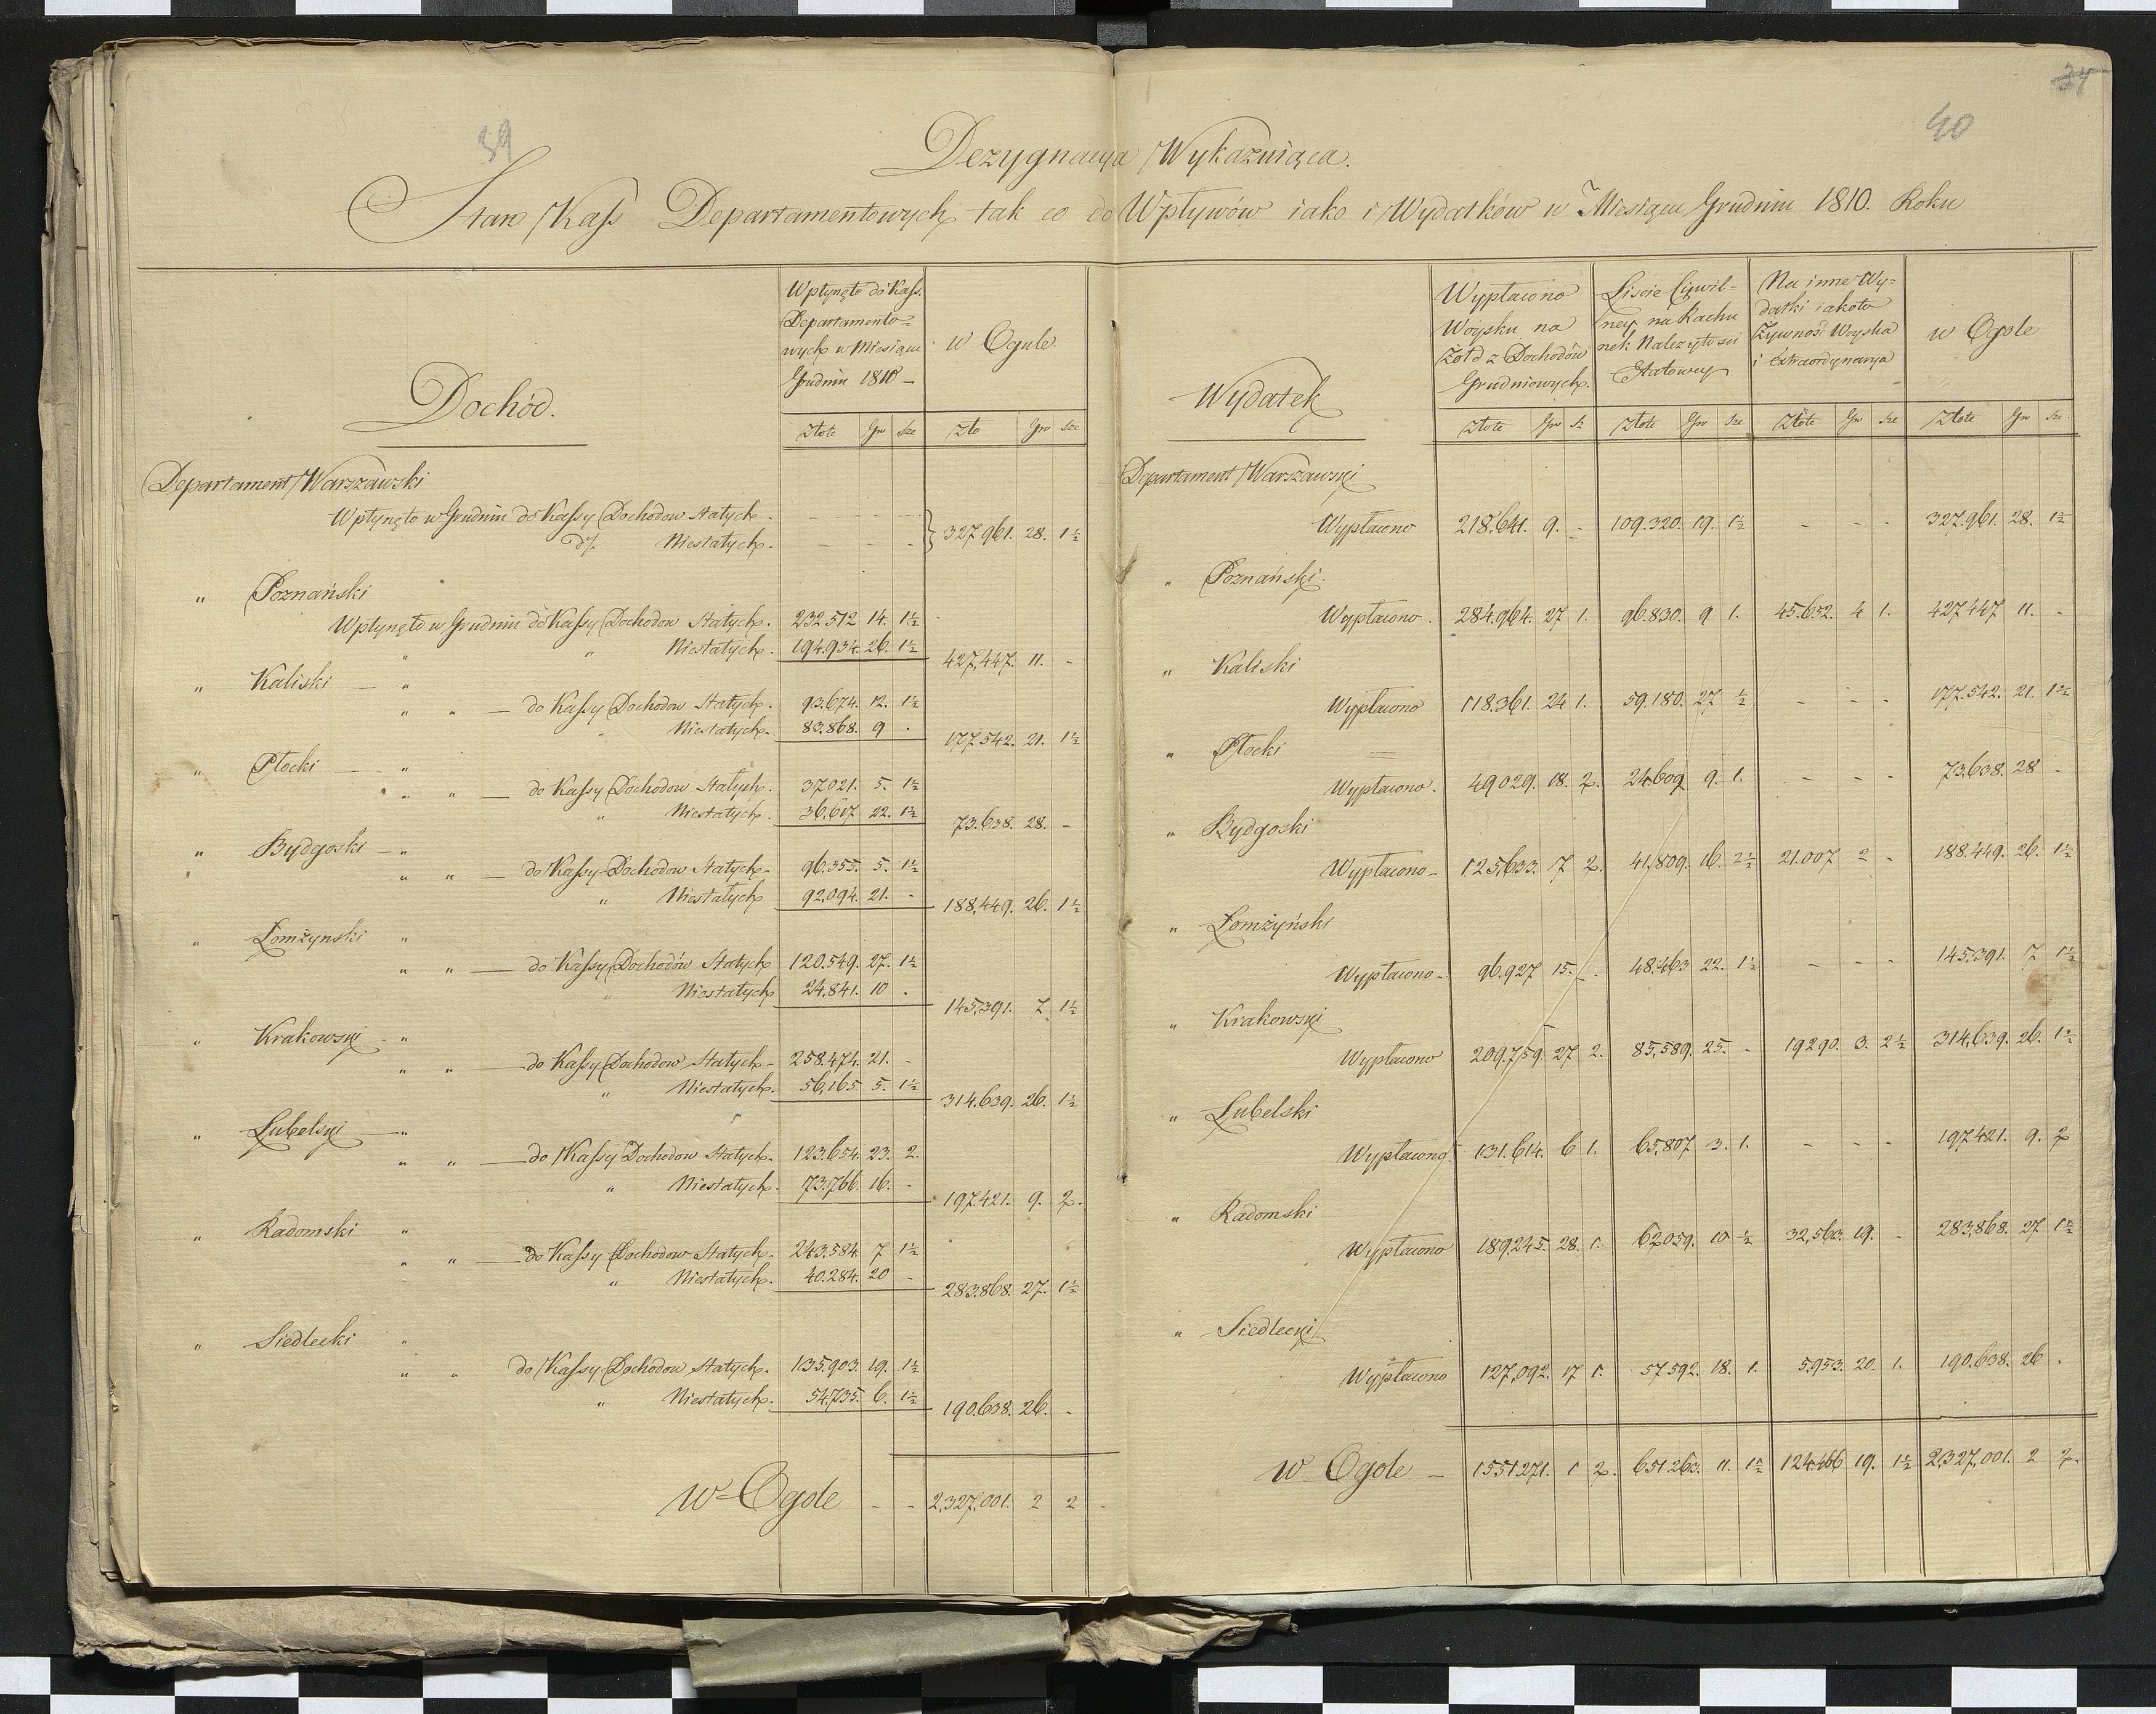 39
40
34
Dezygnacya Wykazuiąca.
Stan Kass Departamentowych tak co do Wpływów iako i Wydatków w Miesiącu Grudniu 1810. Roku
Dochód.
Wpłynęło do Kass.
Departamento=
wych w Miesiącu
Grudniu 1810 —
w Ogule.
Złote Gr Sze Zło Gr Sze
Departament Warszawski
Wpłynęło w Grudniu do Kassy Dochodow Stałych. - - - -
d/. Niestałych. - - - - } 327,961. 28. 1½
" Poznański
Wpłynęło w Grudniu do Kassy Dochodow Stałych. 232.512 14. 1½
" " Niestałych. 194.934. 26. 1½
427,447. 11. -
" Kaliski — "
" " — do Kassy Dochodow Stałych. 93.674. 12. 1½
" Niestałych. 83.868. 9 .
177.542. 21. 1½
" Płocki — "
" " — do Kassy Dochodow Stałych. 37021. 5. 1½
" Niestałych. 36.617 22. 1½
73.638. 28. -
" Bydgoski — "
" " — do Kassy Dochodow Stałych. 96.355. 5. 1½
" Niestałych 92,094. 21. -
188,449. 26. 1½
" Łomżynski "
" " — do Kassy Dochodów Stałych 120.549. 27. 1½
" Niestałych 24.841. 10 .
145,391. 7 1½
" Krakowski - "
" " — do Kassy Dochodow Stałych - 258.474. 21. -
" Niestałych. 56,165. 5. 1½
314.639. 26. 1½
" Lubelski — "
" " — do Kassy Dochodow Stałych. 123.654. 23. 2.
" Niestałych. 73.766. 16. -
197421. 9. 2.
" Radomski "
" " — do Kassy Dochodow Stałych. 243.584. 7 1½
" Niestałych. 40.284. 20 -
283.868. 27. 1½
" Siedlecki "
" " do Kassy Dochodow Stałych. 135.903. 19. 1½
" Niestałych. 54.735. 6. 1½
190.638. 26. -
W Ogole - - 2,327,001. 2 2 -
Wydatek
Wypłacono
Woysku na
Żołd z Dochodów
Grudniowych.
Liście Cywil=
ney na Rachu
nek Należytości
Etatowey
Na inne Wy=
datki iakoto
Żywność Woyska
i Extraordynarya
w Ogole
Złote Gr Sz Złote Gr Sze Złote Gr Sze Złote Gr Sze.
Departament Warszawski
Wypłacono 218.641. 9. - 109.320. 19. 1½ - - - 327.961. 28. 1½
" Poznański.
Wypłacono. 284.964. 27 1. 96.830. 9 1. 45.652. 4 1. 427447 11. -
" Kaliski
Wypłacono 118.361. 24 1. 59.180. 27 ½ - - - 177.542. 21. 1½
" Płocki
Wypłacono. 49029. 18. 2. 24.609 9. 1. - - - 73,638. 28 -
" Bydgoski
Wypłacono - 125,633. 17 2. 41,809. 16. 2½ 21.007 2 - 188.449. 26. 1½
" Łomżyński
Wypłacono - 96.927 15. - 48.463 22. 1½ - - - 145.391. 7 1½
" Krakowski
Wypłacono 209.759. 27 2. 85,589. 25. - 19290. 3. 2½ 314,639. 26. 1½
" Lubelski
Wypłacono. 131.614. 6 1. 65,807 3. 1. - - - 197421. 9. 2
" Radomski
Wypłacono 189245. 28. 1. 62059. 10 ½ 32,563. 19. - 283,868. 27 1½
" Siedlecki
Wypłacono 127,092. 17 1. 57592. 18. 1. 5,953. 20. 1. 190.638. 26 .
W Ogole — 1551271. 1 2. 651263. 11. 1½ 124466 19. 1½ 2,327,001. 2 2.